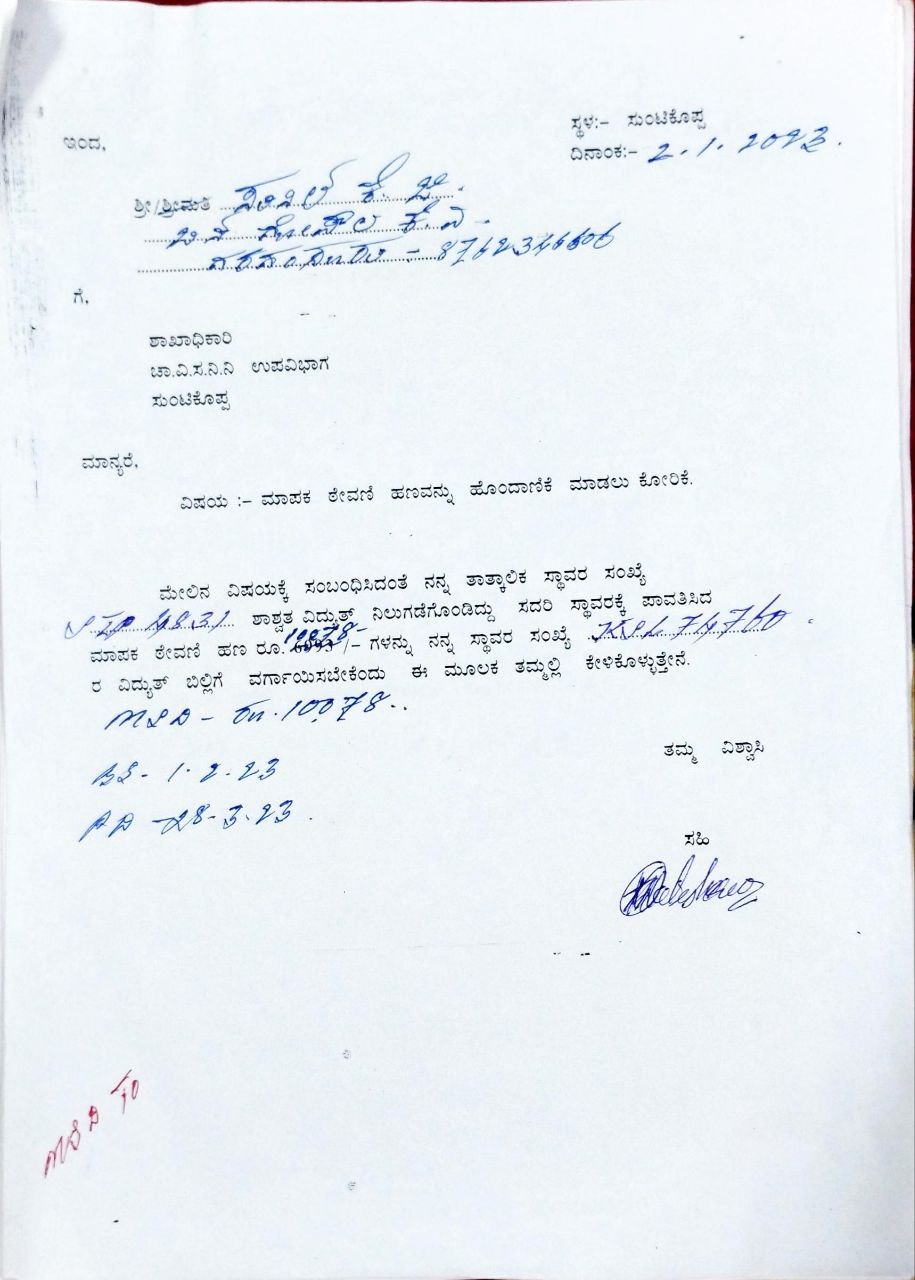 ಸ್ಥಳ:– ಸುಂಟಿಕೊಪ್ಪ
ಇಂದ,
ದಿನಾಂಕ:– 2.1.2023.
ಶ್ರೀ/ಶ್ರೀಮತಿ ಕೆ. ಜಿ.
ಬಿನ್ ಗೋಪಾಲ ಕೆ.ವಿ.
ಗರಗಂದೂರು - 8762346606
ಗೆ,
ಶಾಖಾಧಿಕಾರಿ
ಚಾ.ವಿ.ಸ.ನಿ.ನಿ ಉಪವಿಭಾಗ
ಸುಂಟಿಕೊಪ್ಪ
ಮಾನ್ಯರೆ,
ವಿಷಯ :– ಮಾಪಕ ಠೇವಣಿ ಹಣವನ್ನು ಹೊಂದಾಣಿಕೆ ಮಾಡಲು ಕೋರಿಕೆ.
ಮೇಲಿನ ವಿಷಯಕ್ಕೆ ಸಂಬಂಧಿಸಿದಂತೆ ನನ್ನ ತಾತ್ಕಾಲಿಕ ಸ್ಥಾವರ ಸಂಖ್ಯೆ
STP 4831 ಶಾಶ್ವತ ವಿದ್ಯುತ್ ನಿಲುಗಡೆಗೊಂಡಿದ್ದು ಸದರಿ ಸ್ಥಾವರಕ್ಕೆ ಪಾವತಿಸಿದ
ಮಾಪಕ ಠೇವಣಿ ಹಣ ರೂ. 10078/- ಗಳನ್ನು ನನ್ನ ಸ್ಥಾವರ ಸಂಖ್ಯೆ KSL 74760.
ರ ವಿದ್ಯುತ್ ಬಿಲ್ಲಿಗೆ ವರ್ಗಾಯಿಸಬೇಕೆಂದು ಈ ಮೂಲಕ ತಮ್ಮಲ್ಲಿ ಕೇಳಿಕೊಳ್ಳುತ್ತೇನೆ.
MSD - ರೂ.10078..
ತಮ್ಮ ವಿಶ್ವಾಸಿ
BS - 1.2.23
PD - 28.3.23.
ಸಹಿ
MSD